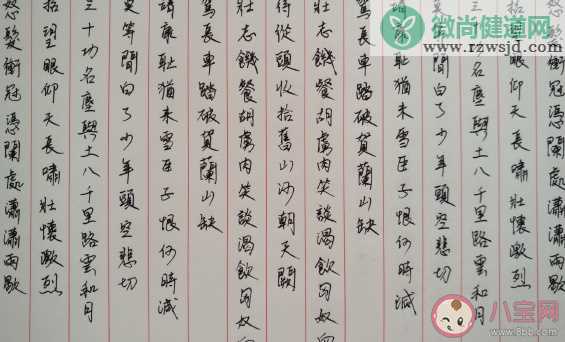 衝冠憑闌處瀟瀟雨歇
眼仰天長嘯壯懷激烈
三名塵與土八千里路雲和月
閒白了少年頭空悲切
恥猶未雪臣子恨何時滅
駕長車踏破賀蘭山缺
壯志饑餐胡虜肉笑談渴飲匈奴
待從頭收拾舊山河朝天闕
壯志饑餐胡虜肉笑談渴飲匈奴
駕長車踏破賀蘭山缺
靖康恥猶未雪臣子恨何時滅
莫等閒白了少年頭空悲切
三十功名塵與土八千里路雲和月
抬望眼仰天長嘯壯懷激烈
怒髮衝冠憑闌處瀟瀟雨歇
微尚健道网
www.rzwsjd.com
八宝网
www.8bb.com